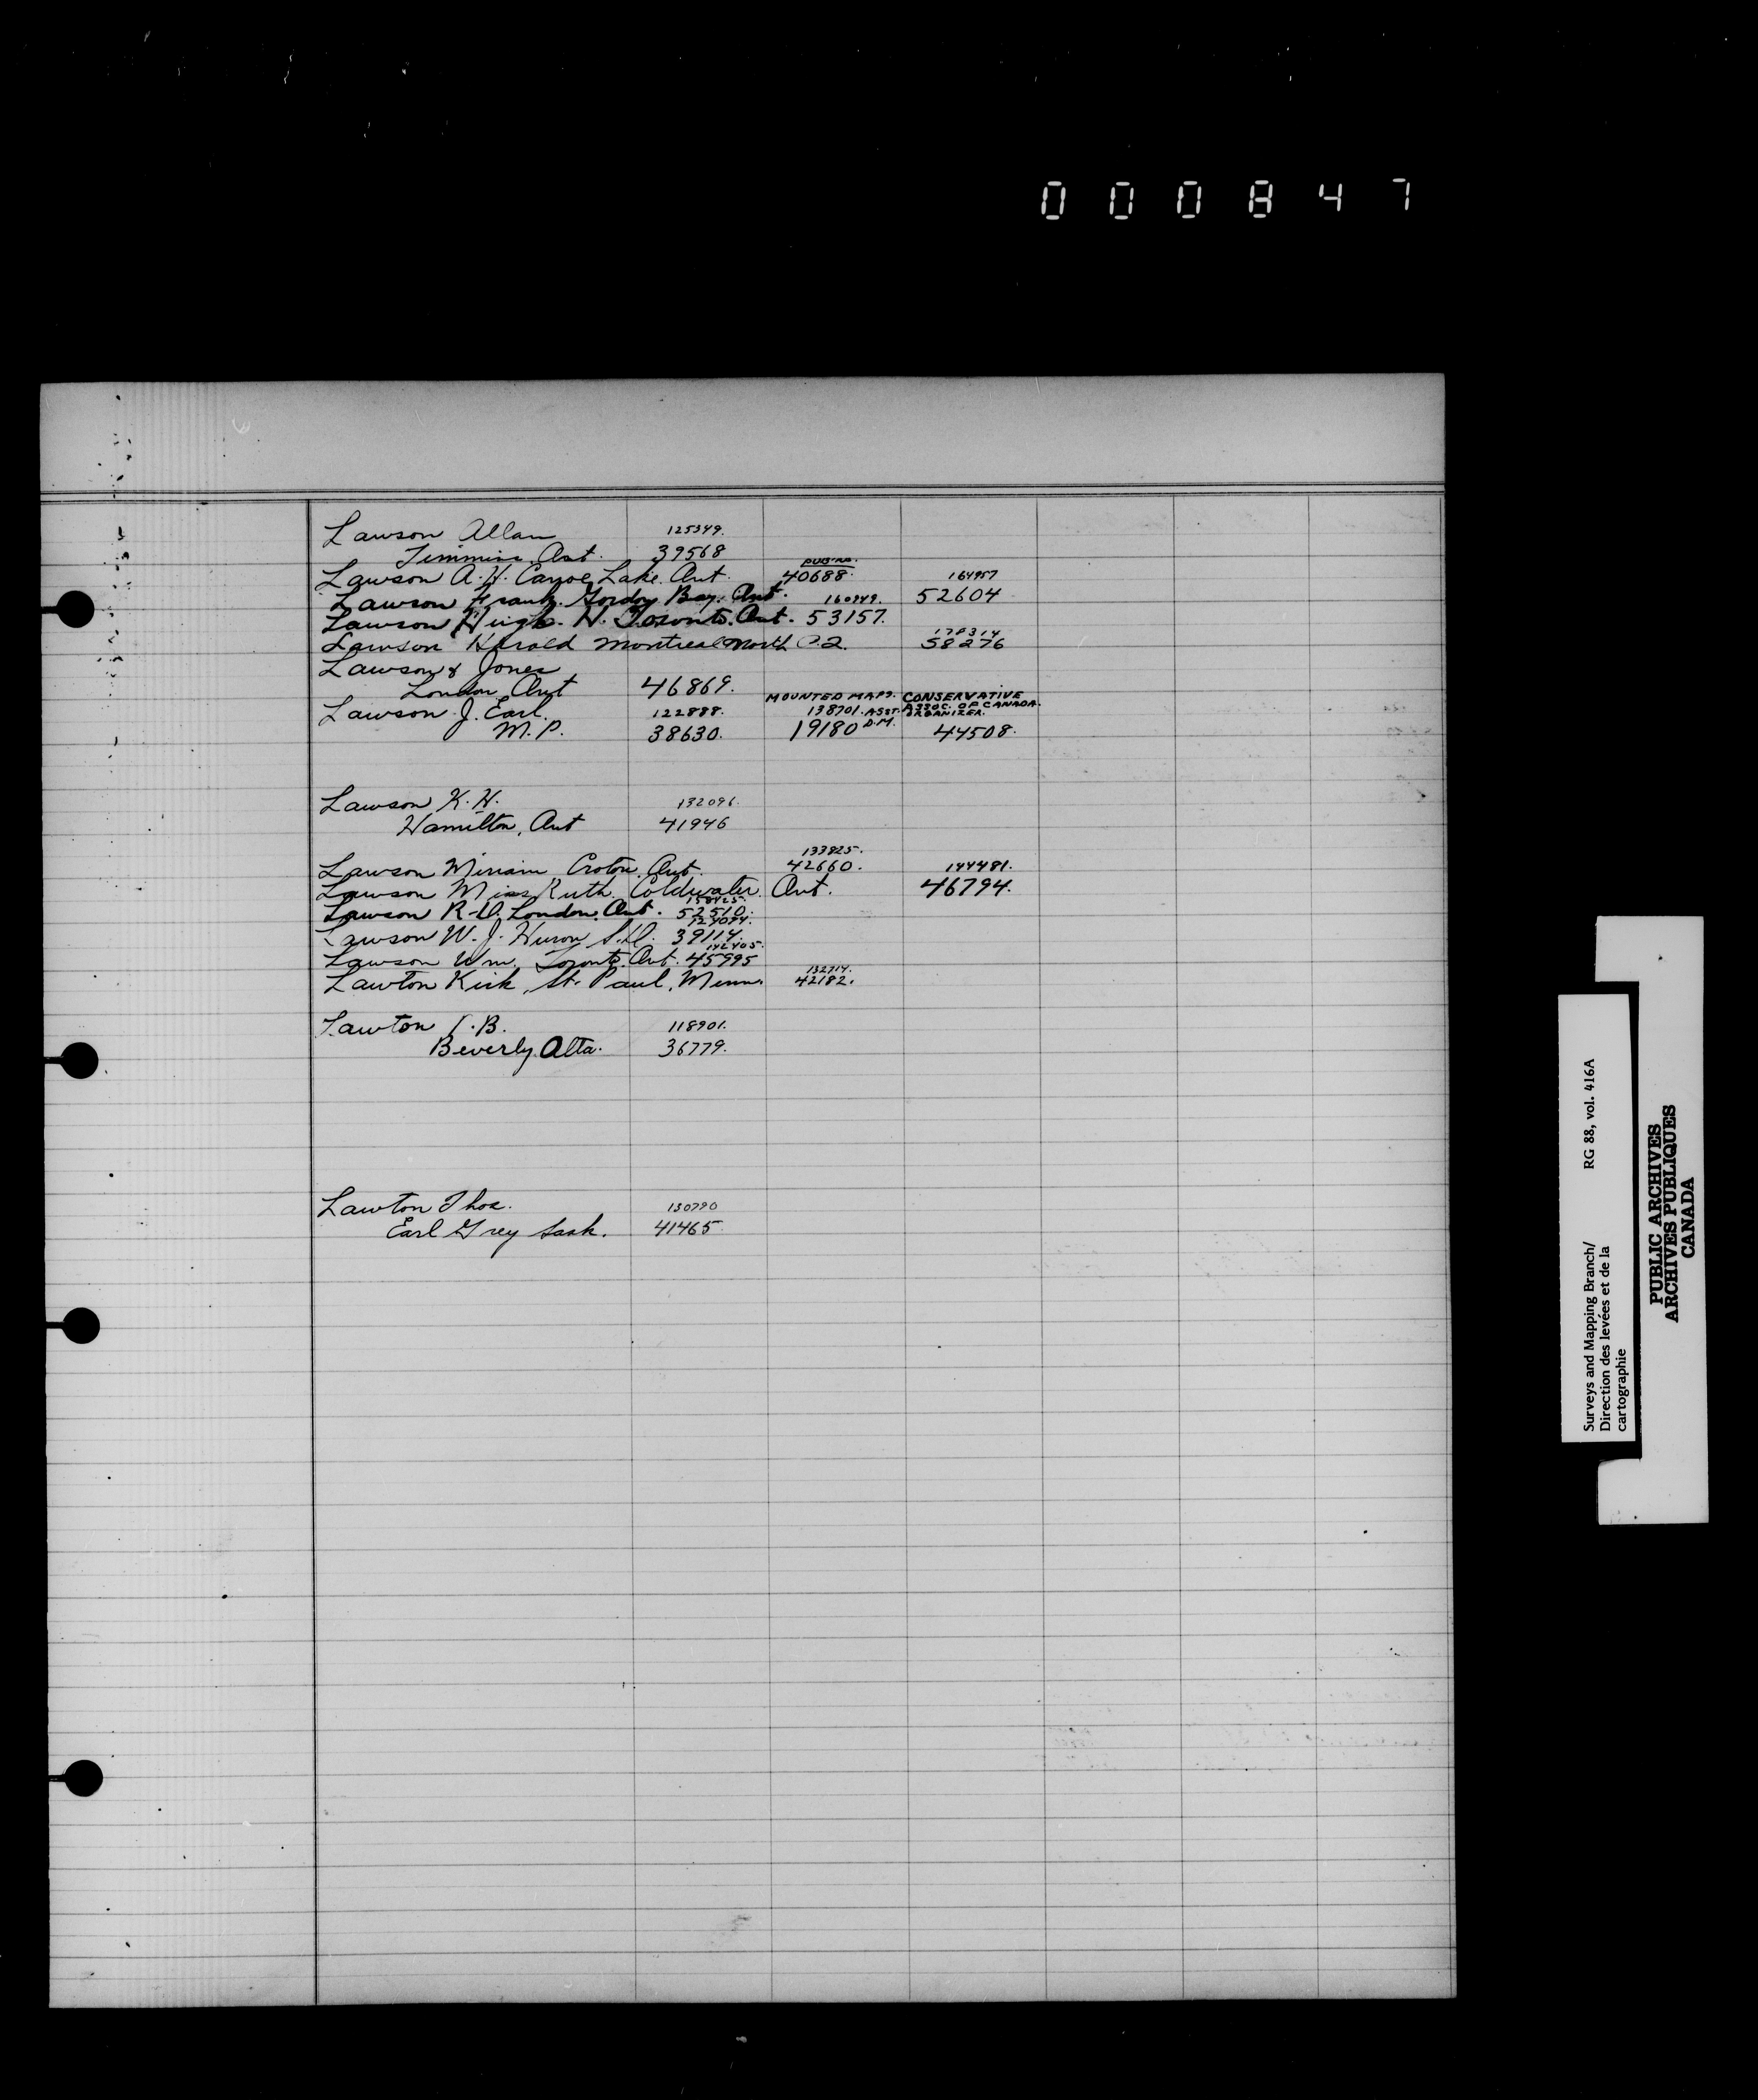 000847
Lawson Allan 125349.
Timmins Ont. 39568
Lawson A.H. Canoe Lake Ont. 40688. 164957
Lawson Frank. Gordon Bay. Ont. 160949. 52604
Lawson Hugh. H. Toronto. Ont. 53157.
Lawson Harold Montreal North P.Q. 58276
Lawson & Jones
London, Ont 46869.
MOUNTED MAPS. CONSERVATIVE
Lawson J. Earl. 122888. 138701. ASST. ASSOC. OF CANADA. ORGANIZER.
M.P. 38630. 19180 D.M. 44508.
Lawson K.H. 132096.
Hamilton, Ont 41946
133825.
Lawson Miriam Croton, Ont. 42660. 144481.
Lawson Miss Ruth Coldwater Ont. 46794.
158425.
Lawson R.D. London. Ont. 52510.
124094.
Lawson W.J. Huron S.D. 39114.
142405.
Lawson Wm. Toronto. Ont. 45995
132714.
Lawton Kirk, St. Paul, Minn. 42182.
Lawton B. 118901.
Beverly. Alta. 36779.
Lawton Thos. 130790
Earl Grey Sask. 41465
Surveys and Mapping Branch/ RG 88, vol. 416A
Direction des levées et de la
cartographie
PUBLIC ARCHIVES
ARCHIVES PUBLIQUES
CANADA